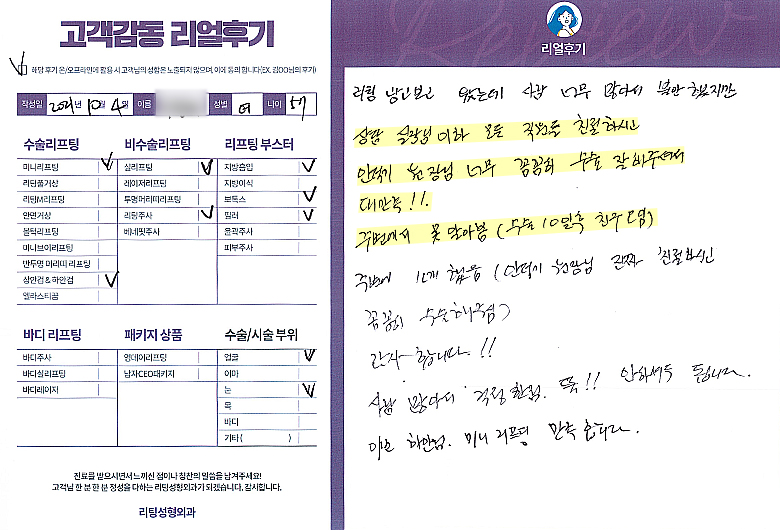 고객감동 리얼후기
해당 후기 온/오프라인에 활용 시 고객님의 성함은 노출되지 않으며, 이에 동의 합니다(EX. 김OO님의 후기)
작성일 2021년 10월 4일 이름 성별 여 나이 57
수술리프팅
미니리프팅
리팅풀거상
리팅M리프팅
안면거상
울트리프팅
미니브이리프팅
반투명 머리띠 리프팅
상안검 & 하안검
엘라스티꿈
비수술리프팅
실리프팅
레이저리프팅
투명머리띠리프팅
리팅주사
베네핏주사
리프팅 부스터
지방흡입
지방이식
보톡스
필러
윤곽주사
피부주사
바디 리프팅
바디주사
바디실리프팅
바디레이저
패키지 상품
영데이리프팅
남자CEO패키지
수술/시술 부위
얼굴
이마
눈
목
바디
기타 ( )
진료를 받으시면서 느끼신 점이나 칭찬의 말씀을 남겨주세요!
고객님 한 분 한 분 정성을 다하는 리팅성형외과가 되겠습니다. 감사합니다.
리팅성형외과
Review
리얼후기
리팅 광고보고 왔는데 사람 너무 많아서 불안 했지만
상담 실장님 이하 모든 직원분 친절하시고
안덕기 원장님 너무 꼼꼼히 수술 잘 해주셔서
대만족!!.
주변에서 못 알아봄 (수술 10일후 친구모임)
주변에 소개 했음 (안덕기 원장님 진짜 친절하시고
꼼꼼히 수술해주심)
감사~ 합니다.!!
사람 많아서 걱정 한점. 뚝!! 안하셔도 됩니다.
이은 하안검. 미니 리프팅 만족 합니다.